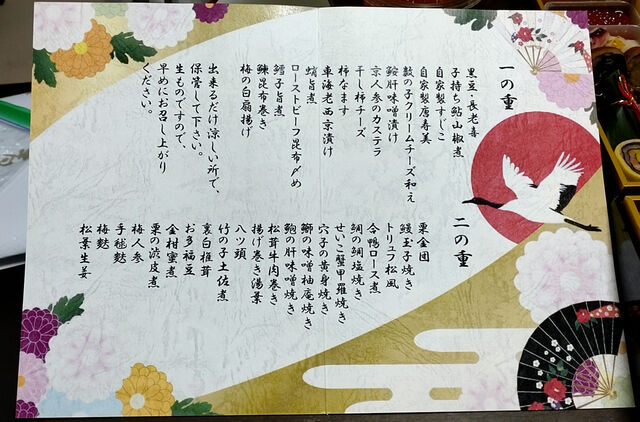 一の重
黒豆・長老喜
子持ち鮎山椒煮
自家製すじこ
自家製唐寿美
数の子クリームチーズ和え
鮟肝味噌漬け
京人参のカステラ
干し柿チーズ
柿なます
車海老西京漬け
蛸旨煮
ローストビーフ昆布〆め
鱈子旨煮
鰊昆布巻き
梅の白扇揚げ
出来るだけ涼しい所で、
保管して下さい。
生ものですので、
早めにお召し上がり
ください。
二の重
栗金団
鰻玉子焼き
トリュフ松風
合鴨ロース煮
鯛の鯛塩焼き
せいこ蟹甲羅焼き
穴子の黄身焼き
鰤の味噌柚庵焼き
鮑の肝味噌焼き
松茸牛肉巻き
揚げ巻き湯葉
八ツ頭
竹の子土佐煮
裏白椎茸
お多福豆
金柑蜜煮
栗の渋皮煮
梅人参
手毬麩
梅麩
松葉生姜